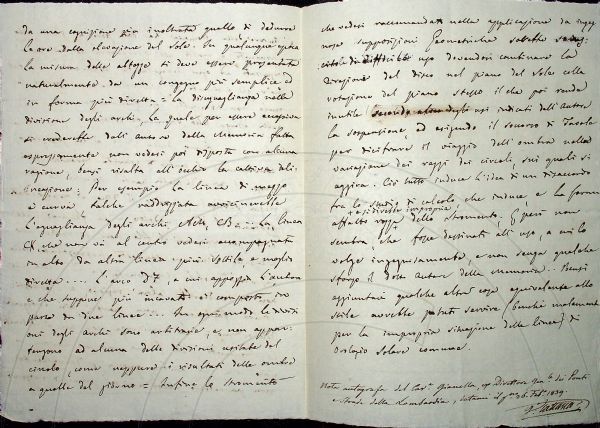 da una cognizione più inoltrata quello di dedurre
l'ora dalla elevazione del Sole. In qualunque epoca
la misura delle altezze si deve essere presentata
naturalmente da un congegno più semplice ed
in forma più diretta = la disuguaglianza nelle
divisioni degli archi, la quale per essere eccessiva
si crederebbe dall'autore della Memoria fatta
espressamente non vedesi poi disposta con alcuna
ragione, bensì risulta all'occhio la cattiva
Per esempio la linea di mezzo
è curva talche raddrizzata
l'eguaglianza degli archi CB la linea
CX che non va al centro vedesi accompagnata
in alto da altra linea più sottile e meglio
diretta ... L'arco DF, a cui appoggia l'autore
e che suppone più incavato è composto in
parte di due linee ... In ogni modo le divisi
oni degli archi sono arbitrarie, e non appar-
tengono ad alcuna delle divisioni usitate del
circolo, come neppure i risultati delle ombre
a quelle del giorno = Infine lo stromento
che vedesi raccomandato nella applicazione da inge
nose supposizioni Geometriche sarebbe
di difficile uso dovendosi combinare la
direzione del disco nel piano del Sole colla
rotazione del piano stesso il che poi rende
inutile secondo alcuni degli usi indicati dall'Autore
la sospensione, ed esigendo il soccorso di Tavole
per decifrare il viaggio dell'ombra nella
variazione dei raggi dei circoli, sui quali si
aggira. Ciò tutto induce l'idea di un disaccordo
fra lo studio di calcolo, che induce, e la forma
affatto rozza dello stromento,
sembra, che fosse destinati all'uso, a cui lo
volge ingegnosamente, e non senza qualche
sforzo il dotto autore della Memoria .. Bensì
aggiuntavi qualche altra cosa equivalente allo
stile avrebbe potuto servire (benchè malamente
per la impropria situazione delle linee) di
Orologio Solare comune.
Nota autografa del Cav.e Gianella, Direttore delle Ponti
e Strade della Lombardia, 26. Feb. 1839.